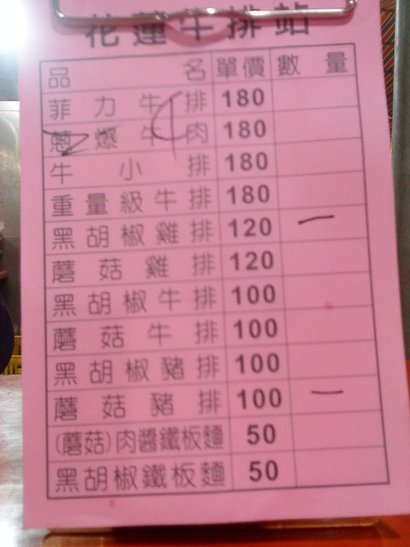 花蓮牛排站
品名 單價 數量
菲力牛排 180
蔥爆牛肉 180
牛小排 180
重量級牛排 180
黑胡椒雞排 120 一
蘑菇雞排 120
黑胡椒牛排 100
蘑菇牛排 100
黑胡椒豬排 100
蘑菇豬排 100 一
(蘑菇)肉醬鐵板麵 50
黑胡椒鐵板麵 50